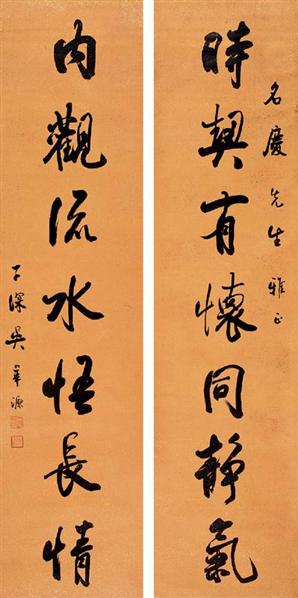 名慶先生雅正
時契有懷同靜氣
內觀流水悟長情
子深吳華源